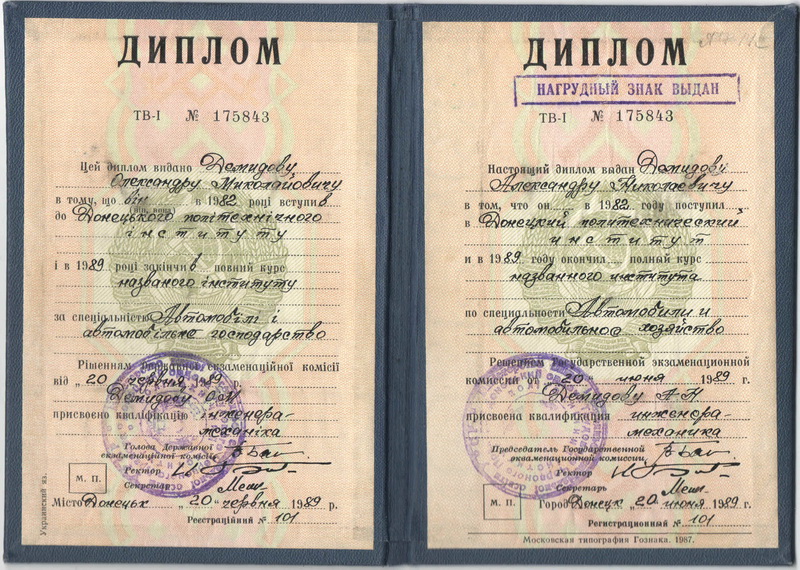 ДИПЛОМ
ТВ-I № 175843
Цей диплом видано Демидову
Олександру Миколайовичу
в тому, що він в 1982 році вступив
до Донецького політехнічного
інституту
і в 1989 році закінчив повний курс
названого інституту
за спеціальністю Автомобілі і
автомобільне господарство
Рішенням Державної екзаменаційної комісії
від „20 червня 1989 г.
Демидову О.М.
присвоєно кваліфікацію інженера-
механіка
Голова Державної
екзаменаційної комісії
Ректор
Секретар
М. П.
Місто Донецьк „20" червня 1989 р.
Реєстраційний № 101
Украинский яз.
ДИПЛОМ
НАГРУДНЫЙ ЗНАК ВЫДАН
ТВ-I № 175843
Настоящий диплом выдан Демидову
Александру Николаевичу
в том, что он в 1982 году поступил
в Донецкий политехнический
институт
и в 1989 году окончил полный курс
названного института
по специальности Автомобили и
автомобильное хозяйство
Решением Государственной экзаменационной
комиссии от „20 июня 1989 г.
Демидову А Н
присвоена квалификация инженера-
механика
Председатель Государственной
экзаменационной комиссии
Ректор
Секретарь
М. П.
Город Донецк „20 июня 1989 г.
Регистрационный № 101
Московская типография Гознака. 1987.